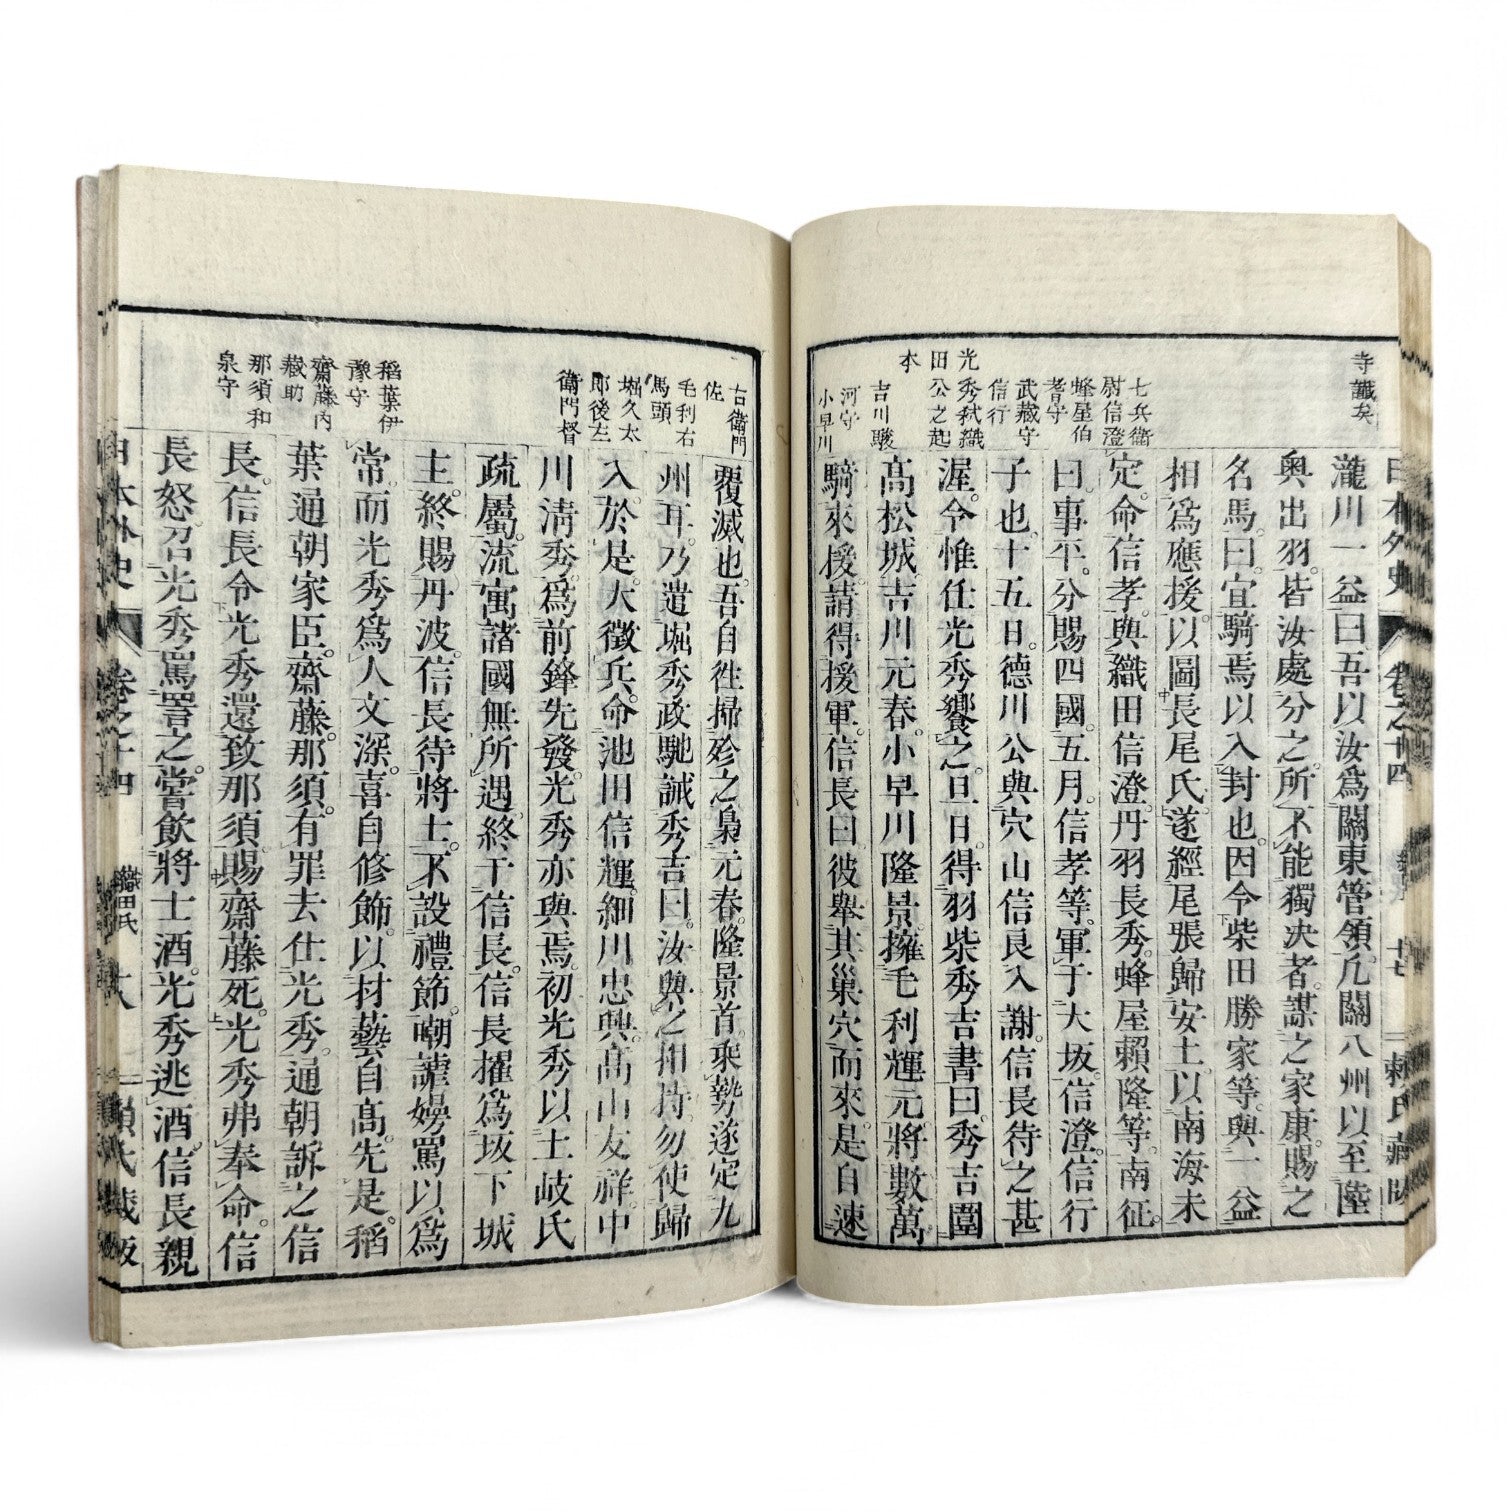 日本外史 卷之十四 十七 賴氏藏版
寺讖矣
七兵衛
尉信澄
蜂屋伯
耆守
武藏守
信行
光秀弒織
田公之起
本
吉川駿
河守
小早川
瀧川一益曰吾以汝爲關東管領凡關八州以至陸
奧出羽皆汝處分之所不能獨决者謀之家康賜之
名馬曰宜騎焉以入封也因令柴田勝家等與一益
相爲應援以圖長尾氏遂經尾張歸安土以南海未
定命信孝與織田信澄丹羽長秀蜂屋賴隆等南征
曰事平分賜四國五月信孝等軍于大坂信澄信行
子也十五日德川公與穴山信良入謝信長待之甚
渥令惟任光秀饗之旦日得羽柴秀吉書曰秀吉圍
高松城吉川元春小早川隆景擁毛利輝元將數萬
騎來援請得援軍信長曰彼舉其巢穴而來是自速
右衛門
佐
毛利右
馬頭
堀久太
郎後左
衛門督
稻葉伊
豫守
齋藤内
藏助
那須和
泉守
覆滅也吾自徃掃殄之梟元春隆景首乘勢遂定九
州耳乃遣堀秀政馳誡秀吉曰汝與之相持勿使歸
入於是大徵兵命池田信輝細川忠興高山友祥中
川淸秀爲前鋒先發光秀亦與焉初光秀以土岐氏
疏屬流寓諸國無所遇終干信長信長擢爲坂下城
主終賜丹波信長待將士不設禮節嘲謔嫚罵以爲
常而光秀爲人文深喜自修飾以材藝自高先是稻
葉通朝家臣齋藤那須有罪去仕光秀通朝訴之信
長信長令光秀還致那須賜齋藤死光秀弗奉命信
長怒召光秀罵詈之嘗飮將士酒光秀逃酒信長親
日本外史 卷之十四 織田氏 十八 賴氏藏版